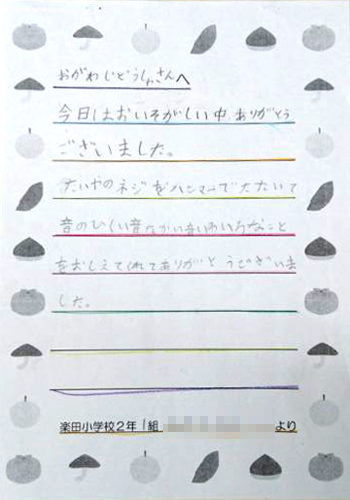 おがわじどうしゃさんへ
今日はおいそがしい中ありがとう
ございました。
たいやのネジをハンマーでたたいて
音のひくい音たかい音いろいろなこと
をおしえてくれてありがとうございま
した。
楽田小学校2年1組 より